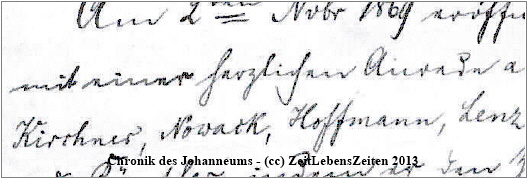 Am 2ten Nobr 1869 eröff
mit einer herzlichen Anrede a
Kirchner, Nowack, Hoffmann, Lenz
Chronik des Johanneums - (cc) ZeitLebensZeiten 2013
indem er den